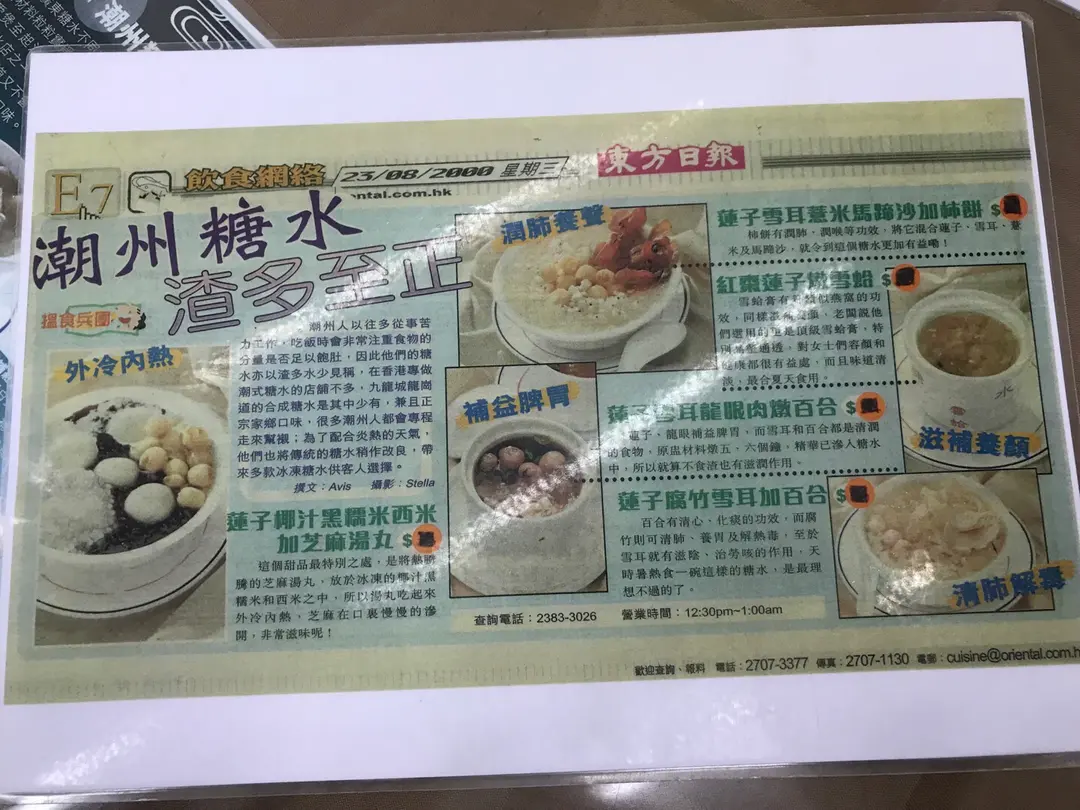 E7
飲食網絡
23/08/2000 星期三
ntal.com.hk
東方日報
潮州糖水
渣多至正
搵食兵團
潮州人以往多從事苦
力工作，吃飯時會非常注重食物的
分量是否足以飽肚，因此他們的糖
水亦以渣多水少見稱，在香港專做
潮式糖水的店舖不多，九龍城龍崗
道的合成糖水是其中少有，兼且正
宗家鄉口味，很多潮州人都會專程
走來幫襯；為了配合炎熱的天氣，
他們也將傳統的糖水稍作改良，帶
來多款冰凍糖水供客人選擇。
撰文：Avis 攝影：Stella
外冷內熱
蓮子椰汁黑糯米西米
加芝麻湯丸 $
這個甜品最特別之處，是將熱騰
騰的芝麻湯丸，放於冰凍的椰汁黑
糯米和西米之中，所以湯丸吃起來
外冷內熱，芝麻在口裏慢慢的滲
開，非常滋味呢！
潤肺養聲
蓮子雪耳薏米馬蹄沙加柿餅 $
柿餅有潤肺、潤喉等功效，將它混合蓮子、雪耳、薏
米及馬蹄沙，就令到這個糖水更加有益嘞！
紅棗蓮子燉雪蛤 $
雪蛤膏有
似燕窩的功
效，同樣
老闆說他
們選用的
是頂級雪蛤膏，特
別
通透，對女士們容顏和
健康都很有益處，而且味道清
淡，最合夏天食用。
滋補養顏
補益脾胃
蓮子雪耳龍眼肉燉百合 $
蓮子、龍眼補益脾胃，而雪耳和百合都是清潤
的食物，原盅材料燉五、六個鐘，精華已滲入糖水
中，所以就算不食渣也有滋潤作用。
蓮子腐竹雪耳加百合 $
百合有清心、化痰的功效，而腐
竹則可清肺、養胃及解熱毒，至於
雪耳就有滋陰、治勞咳的作用，天
時暑熱食一碗這樣的糖水，是最理
想不過的了。
清肺解毒
查詢電話：2383-3026 營業時間：12:30pm~1:00am
歡迎查詢、報料 電話：2707-3377 傳真：2707-1130 電郵：cuisine@oriental.com.h